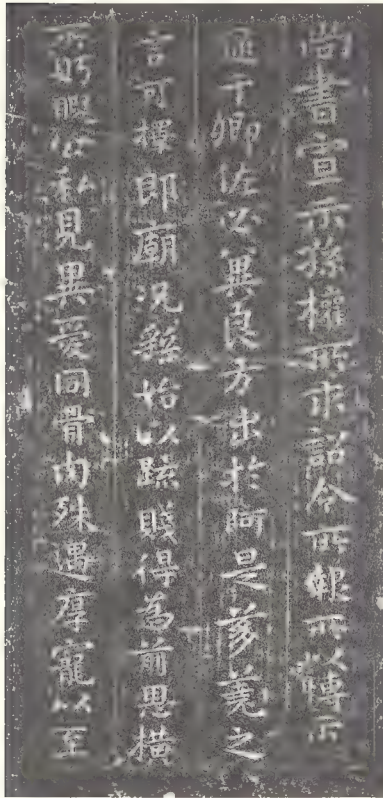 尚書宣示孫權所求詔令所報所以博示
逮于卿佐必冀良方出於阿是芻蕘之
言可擇郎廟況繇始以疏賤得爲前恩橫
所盱睨公私見異愛同骨肉殊遇厚寵以至